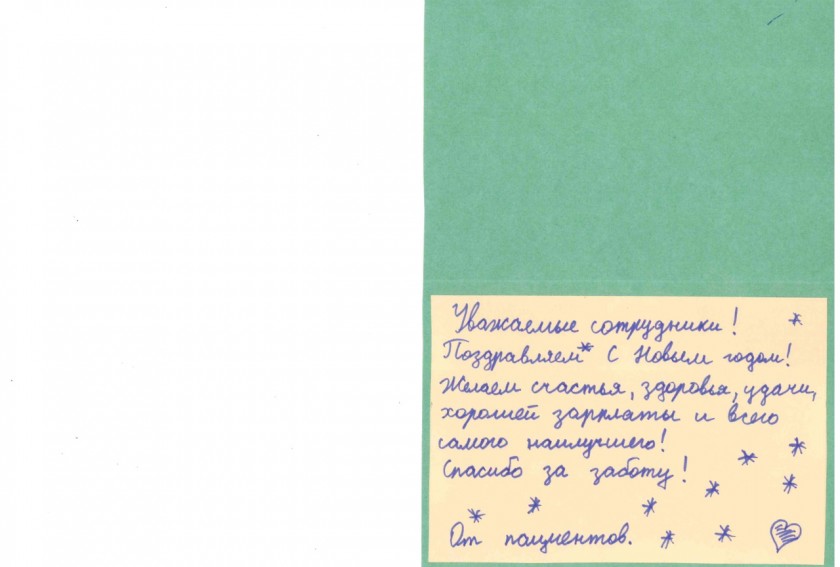 Уважаемые сотрудники!
Поздравляем* С Новым годом!
Желаем счастья, здоровья, удачи,
хорошей зарплаты и всего
самого наилучшего!
Спасибо за заботу!
От пациентов.